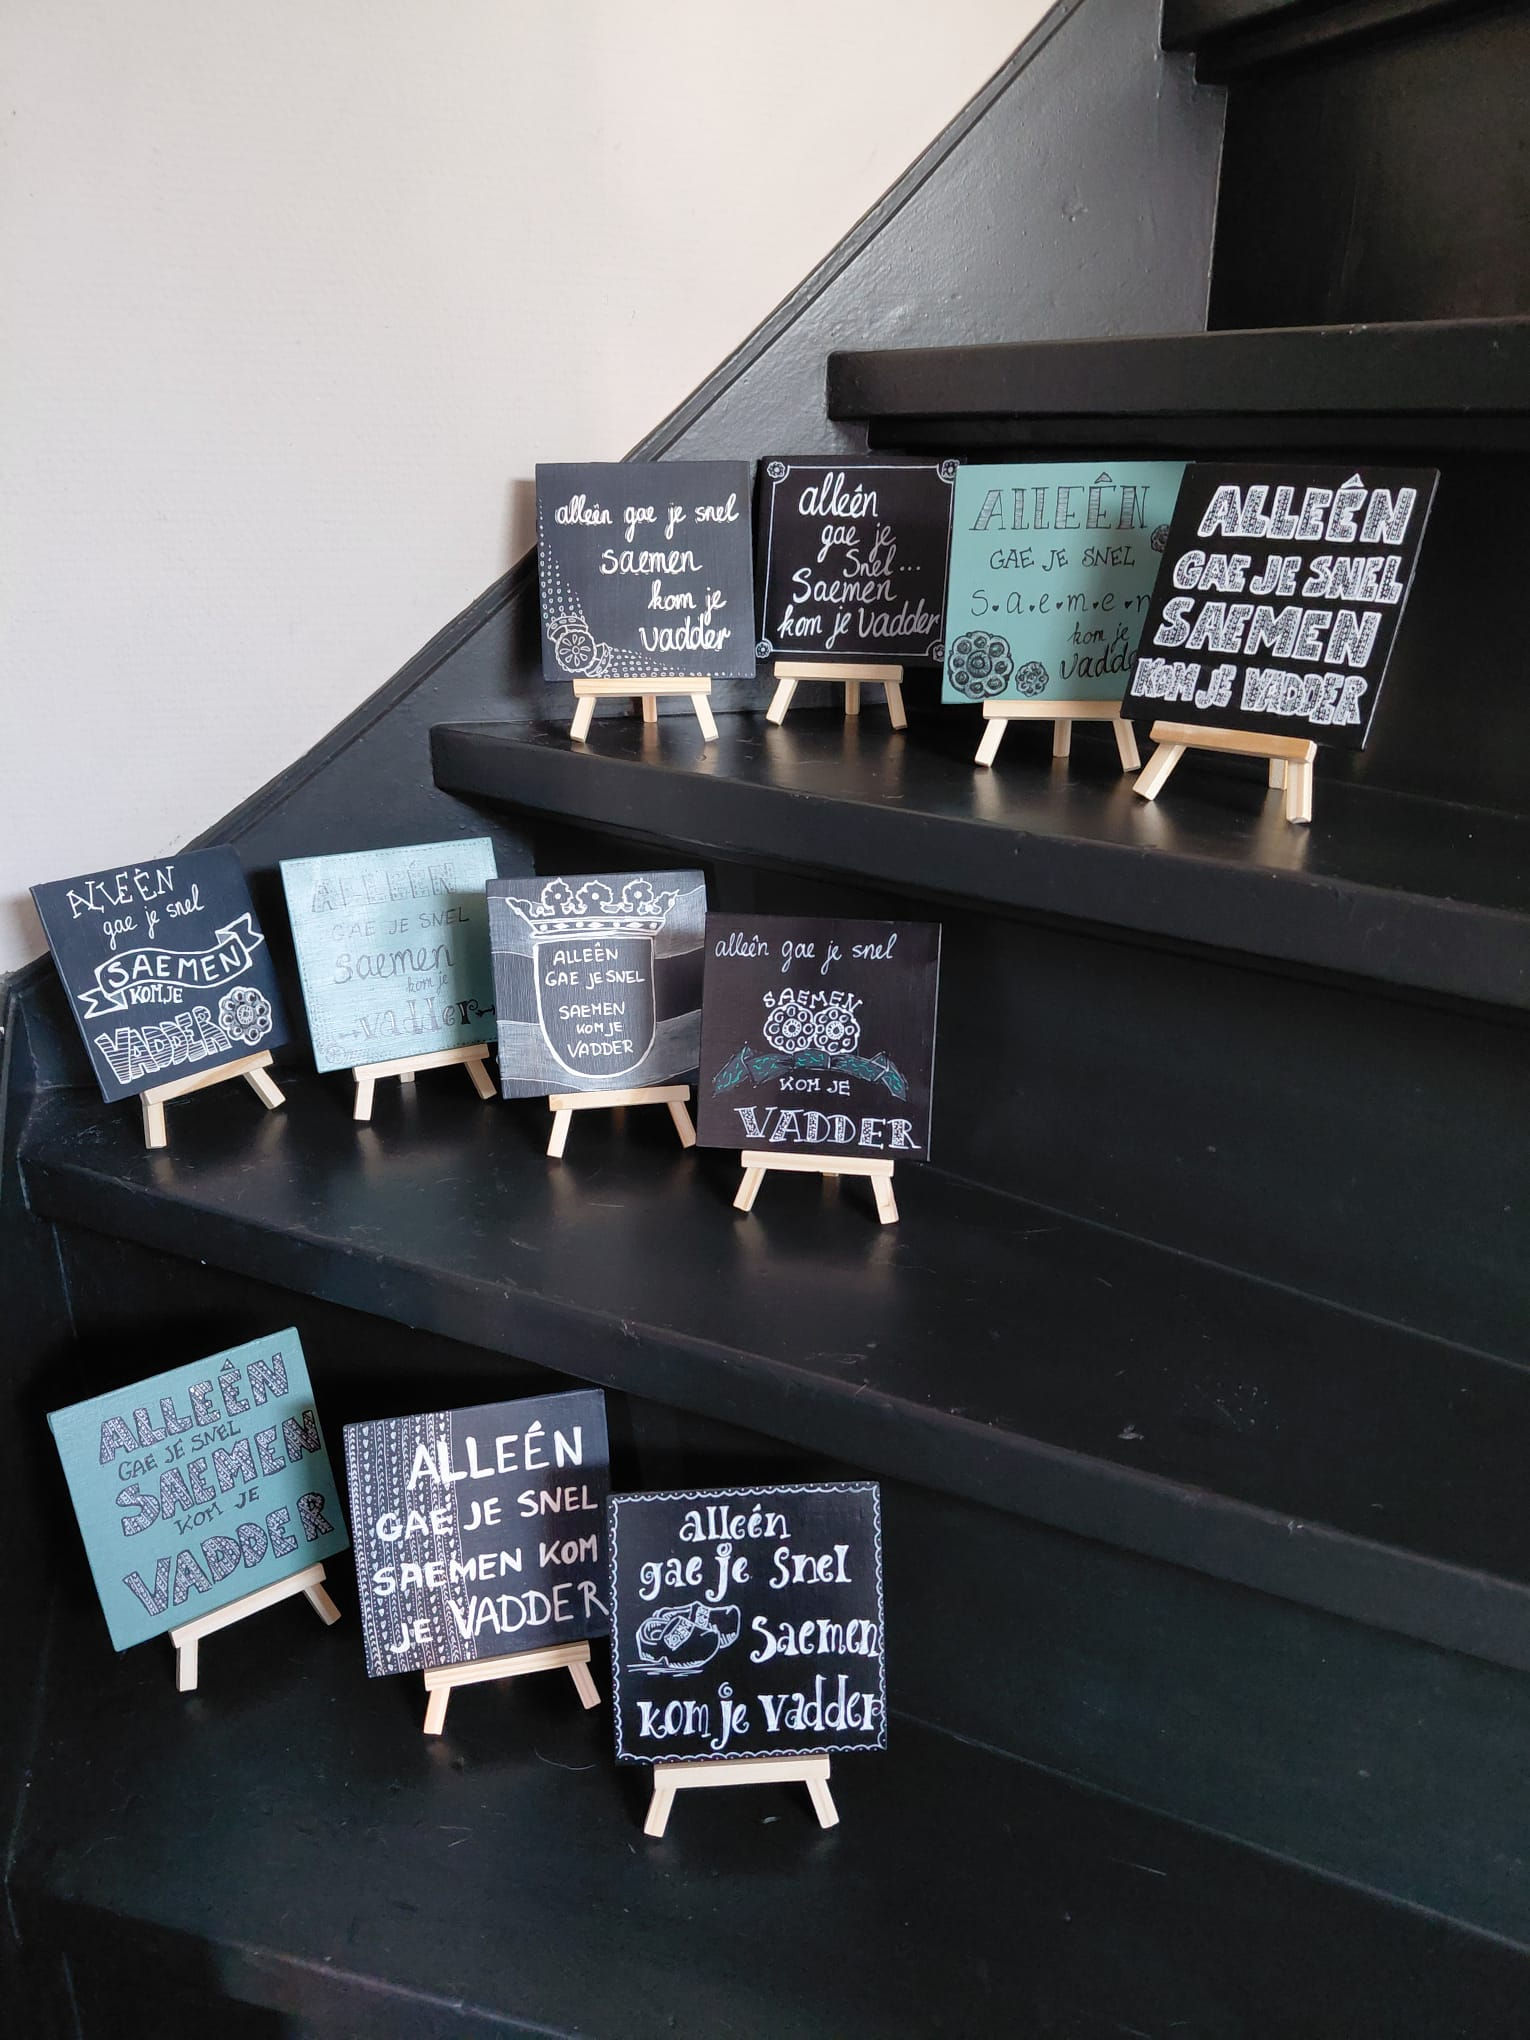 allêên gae je snel
saemen
kom je
vadder
alleên
gae je
snel...
Saemen
kom je vadder
ALLEÊN
GAE JE SNEL
S.a.e.m.e.n
kom je
vadde
ALLEÊN
GAE JE SNEL
SAEMEN
KOM JE VADDER
ALLEÉN
gae je snel
SAEMEN
KOM JE
VADDER
ALLEÉN
GAE JE SNEL
saemen
kom je
vadder
ALLEÊN
GAE JE SNEL
SAEMEN
KOM JE
VADDER
alleên gae je snel
SAEMEN
KOM JE
VADDER
ALLEÊN
GAE JE SNEL
SAEMEN
KOM JE
VADDER
ALLEÉN
GAE JE SNEL
SAEMEN KOM
JE VADDER
alleén
gae je snel
Saemen
kom je vadder